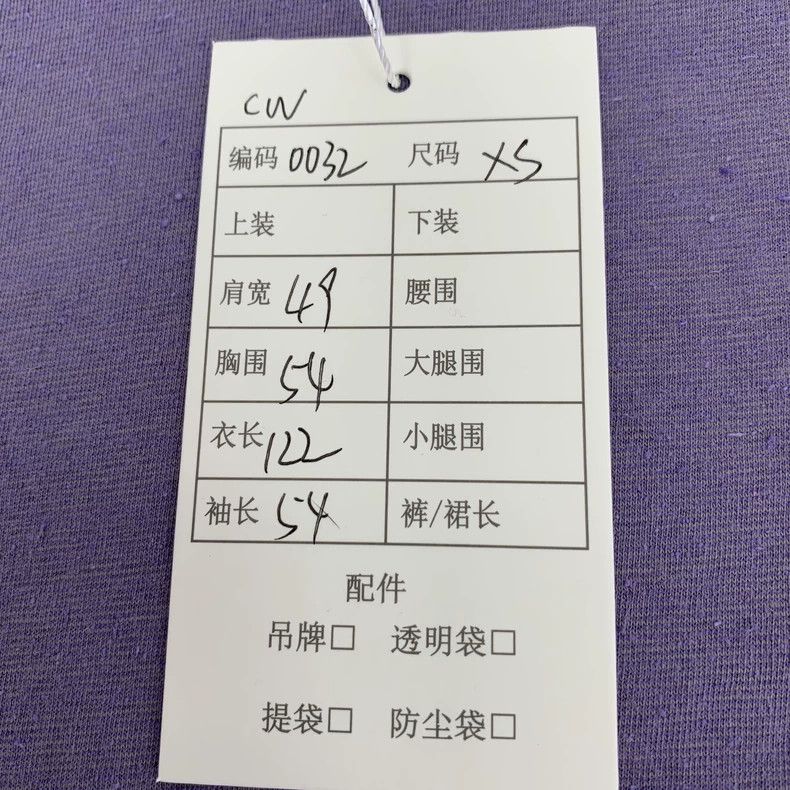 CW
编码 0032 尺码 XS
上装 下装
肩宽 49 腰围
胸围 54 大腿围
衣长 122 小腿围
袖长 54 裤/裙长
配件
吊牌□ 透明袋□
提袋□ 防尘袋□